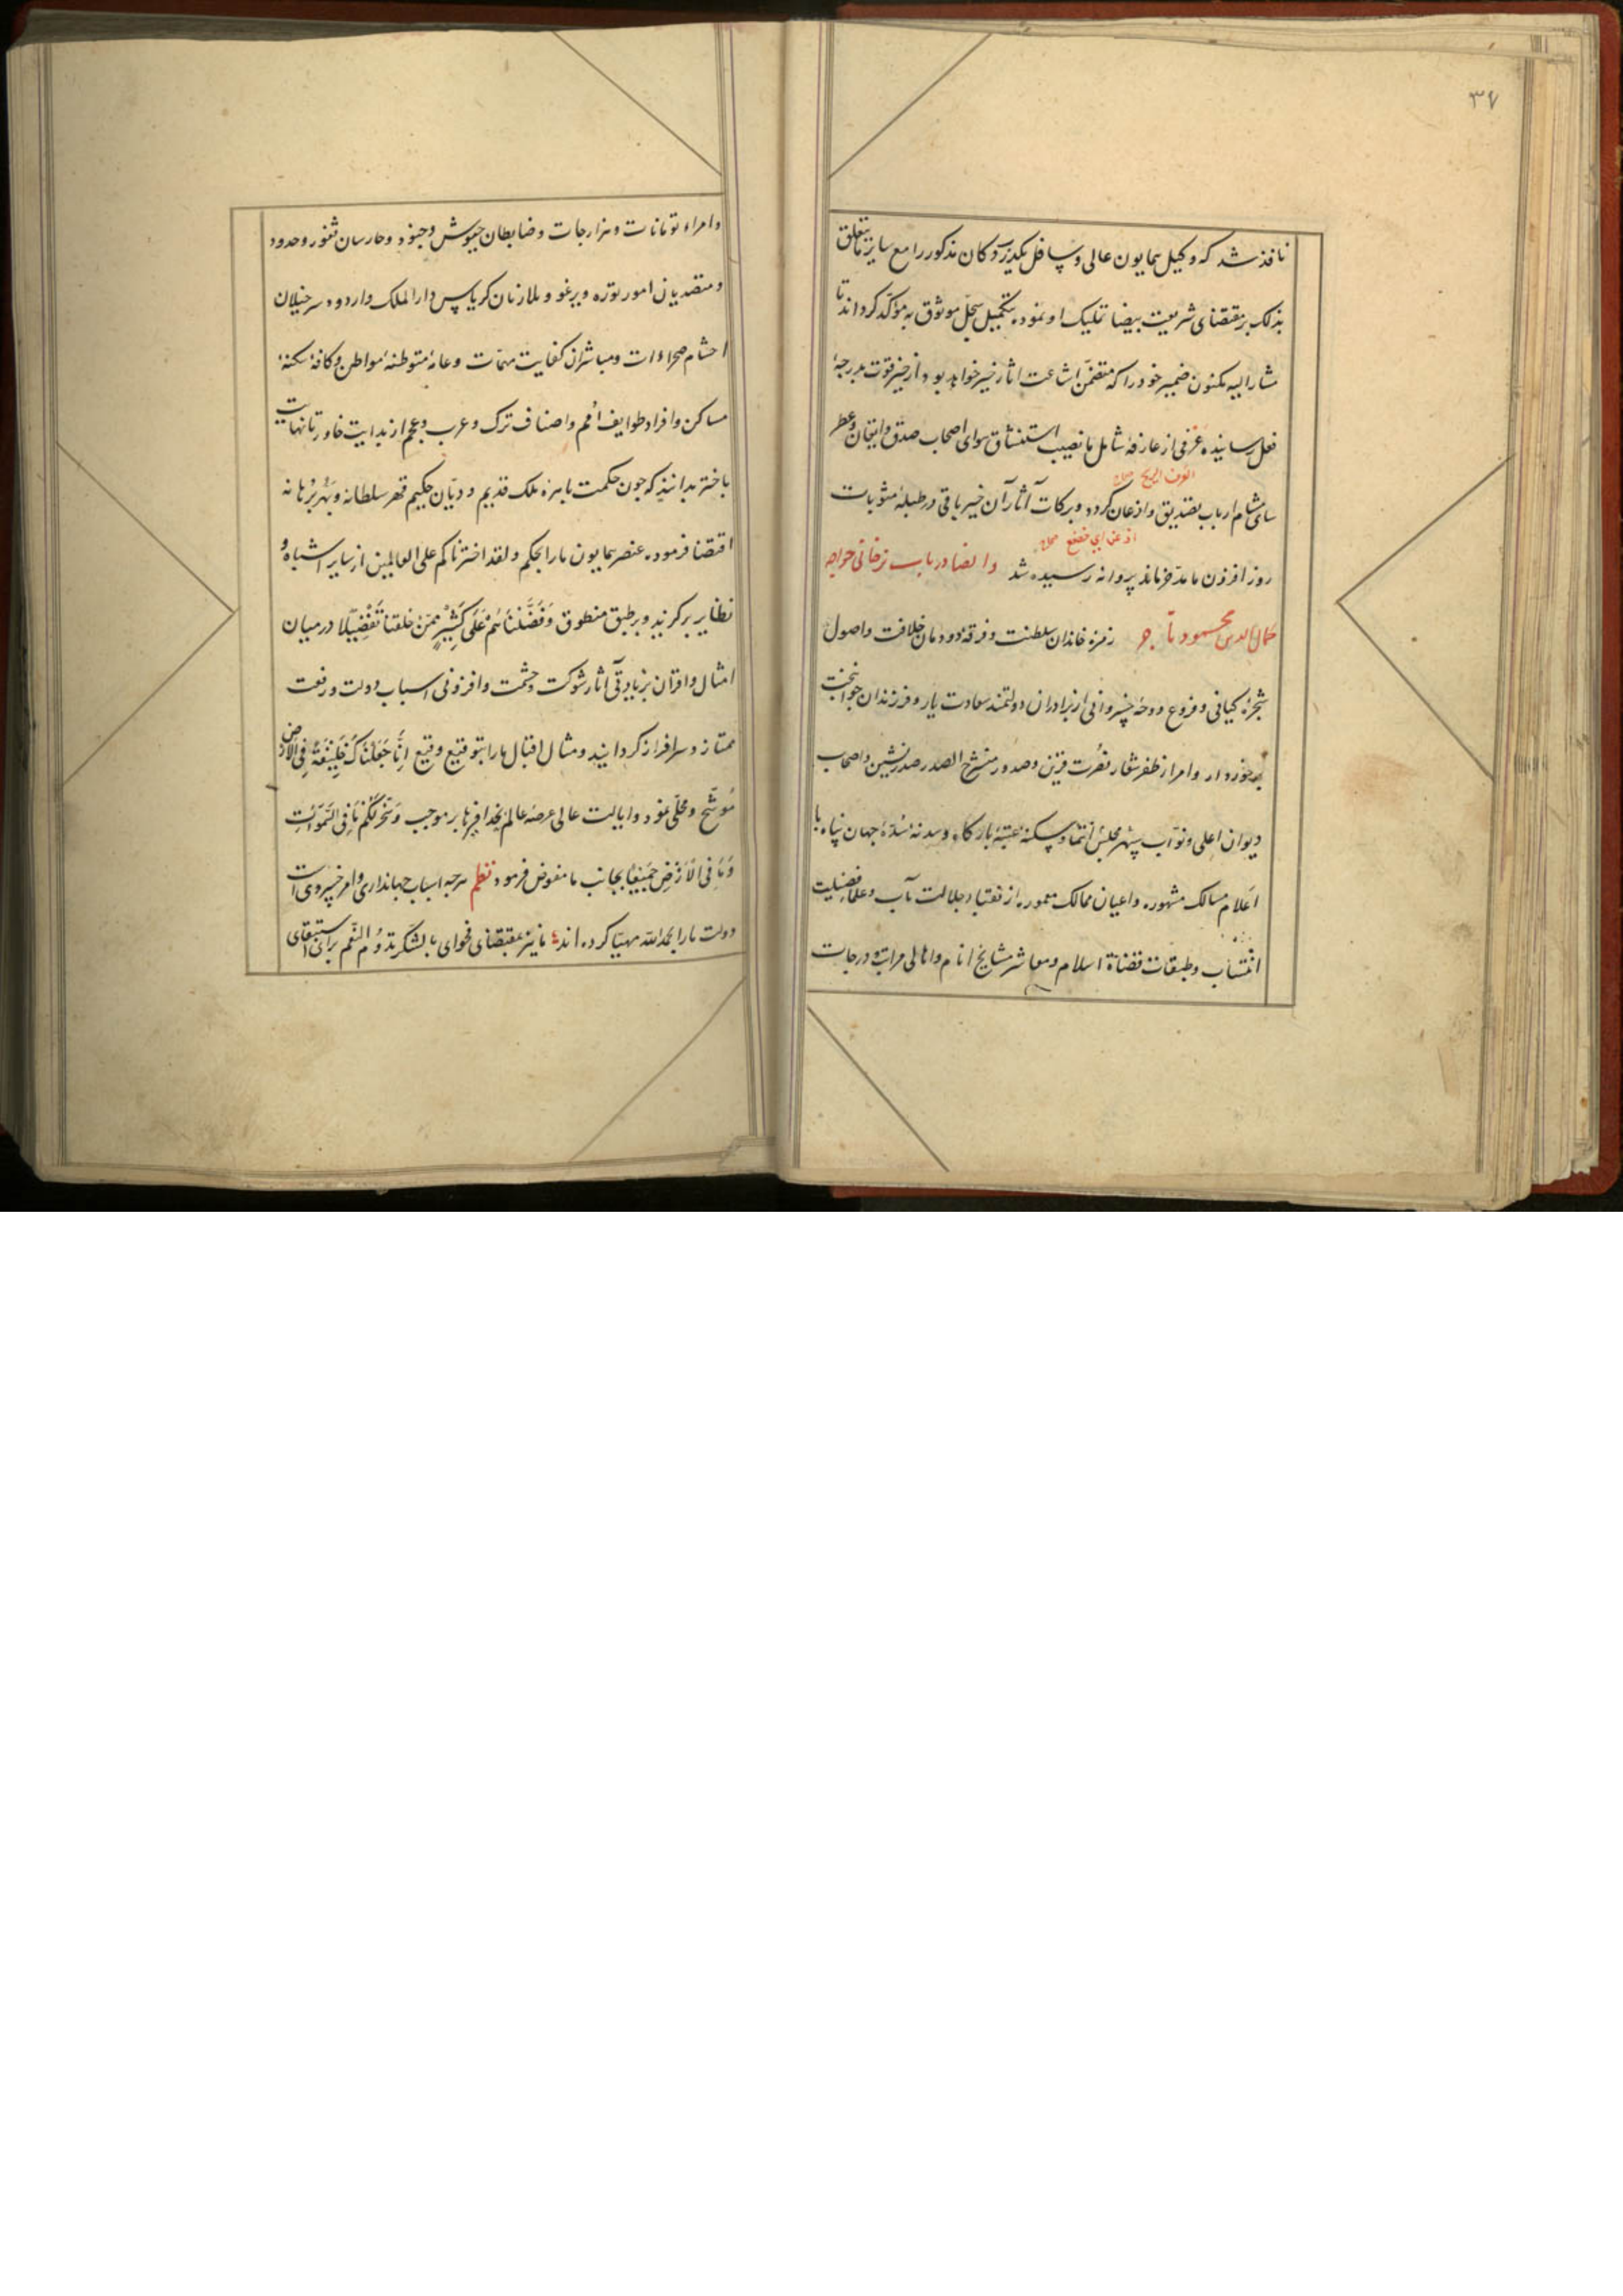 ۳۷
نافذ شد که وکیل همایون عالی و سافل یکدیزد کان مذکور را مع سایر ما یتعلق
بذلک بر مقتضای شریعت بیضا تملیک او نموده بتکمیل سجل موثوق به مؤکد کرداند تا
مشار الیه مکنون ضمیر خود را که متضمن اشاعت اثار خیر خواهد بود از خیز قوت بدرجهٔ
فعل رسانیده عرفی از عارفهٔ شامل ما نصیب استنشاق هوای اصحاب صدق و ایتقان و عطر
العرف الریح
سای مشام ارباب تصدیق و اذعان کردد و برکات آثار آن خیر باقی در طبلهٔ مثوبات
اذعن ای خضع
روز افزون ما مدخر ماند پروانه رسیده شد وایضا در باب ترخانی خواجه
جمال الدین محمود تاجر زمرهٔ خاندان سلطنت و فرقهٔ دودمان خلافت و اصول
شجرهٔ کیانی و فروع دوحهٔ خسروانی از برادران دولتمند سعادت یار و فرزندان جوانبخت
برخوردار و امراء ظفر شعار نصرت قرین و صدور منشرح الصدر صدر نشین و اصحاب
دیوان اعلی و نواب سپهر مجلس انتما و سکنهٔ عتبهٔ بارکاه و سدنهٔ سدهٔ جهان پناه با
اعلام مسالک مشهوره و اعیان ممالک معموره از نقباء جلالت مآب و علماء فضیلت
انتساب و طبقات قضاة اسلام و معاشر مشایخ انام و اهالی مراتب و درجات
و امراء تومانات و هزارجات و ضابطان جیوش و جنود و حارسان ثغور و حدود
و متصدیان امور توره و یرغو و ملازمان کریاس دار الملک و اردو و سر خیلان
احشام صحراءات و مباشران کفایت مهمات و عامهٔ متوطنهٔ مواطن و کافهٔ سکنهٔ
مساکن و افراد طوایف امم و اصناف ترک و عرب و عجم از بدایت خاور تا نهایت
باختر بدانند که چون حکمت باهرهٔ ملک قدیم و دیان حکیم قهر سلطانه و بهر برهانه
اقتضا فرمود که عنصر همایون ما را بحکم ولقد اخترناکم علی العالمین از سایر اشباه و
نظایر برکزید و بر طبق منطوق وَفَضَّلْنَاهُمْ عَلَى كَثِيرٍ مِمَّنْ خلقنا تَفْضِيلًا در میان
امثال و اقران بزیادتی آثار شوکت و حشمت و افزونی اسباب دولت و رفعت
ممتاز و سرافراز کردانید و مثال اقبال ما را بتوقیع وقیع اِنَّا جَعَلْنَاكَ خَلِيفَةً فِي الْاَرْضِ
مُوشّح و محلّی نمود و ایالت عالی عرصهٔ عالم بحذافیرها بر موجب وَسَخَّرَ لَكُمْ مَا فِي السَّمٰوَاتِ
وَمَا فِي الْاَرْضِ جَمِيعًا بجانب ما مفوض فرمود نظم هرچه اسباب جهانداری و امر خسروی است
دولت ما را بحمدالله مهیّا کرده اند ما نیز بمقتضای فحوای بالشکر تدوم النعم برای استبقای